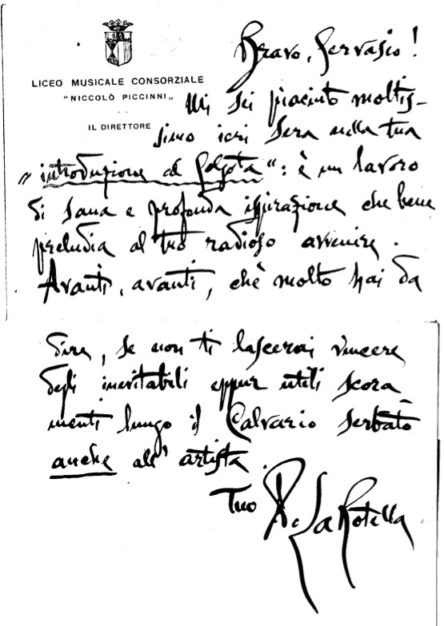 Bravo, Gervasio!
LICEO MUSICALE CONSORZIALE
"NICCOLÒ PICCINNI"
IL DIRETTORE
Mi sei piaciuto moltis-
simo ieri sera nella tua
"introduzione al Golgota": è un lavoro
di sana e profonda ispirazione che bene
preludia al tuo radioso avvenire.
Avanti, avanti, chè molto hai da
dire, se non ti lascerai vincere
degli inevitabili eppur utili scora-
menti lungo il Calvario serbato
anche all'artista
Tuo P. La Rotella